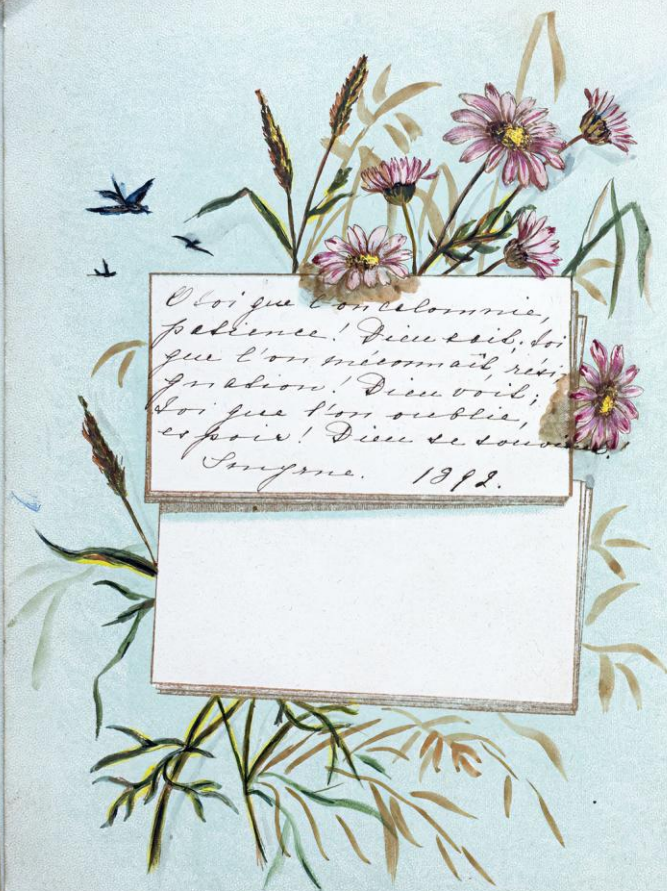 O toi que l'on calomnie,
patience! Dieu sait; toi
que l'on méconnaît, rési-
gnation! Dieu voit;
toi que l'on oublie,
espoir! Dieu se souvient.
Smyrne. 1892.